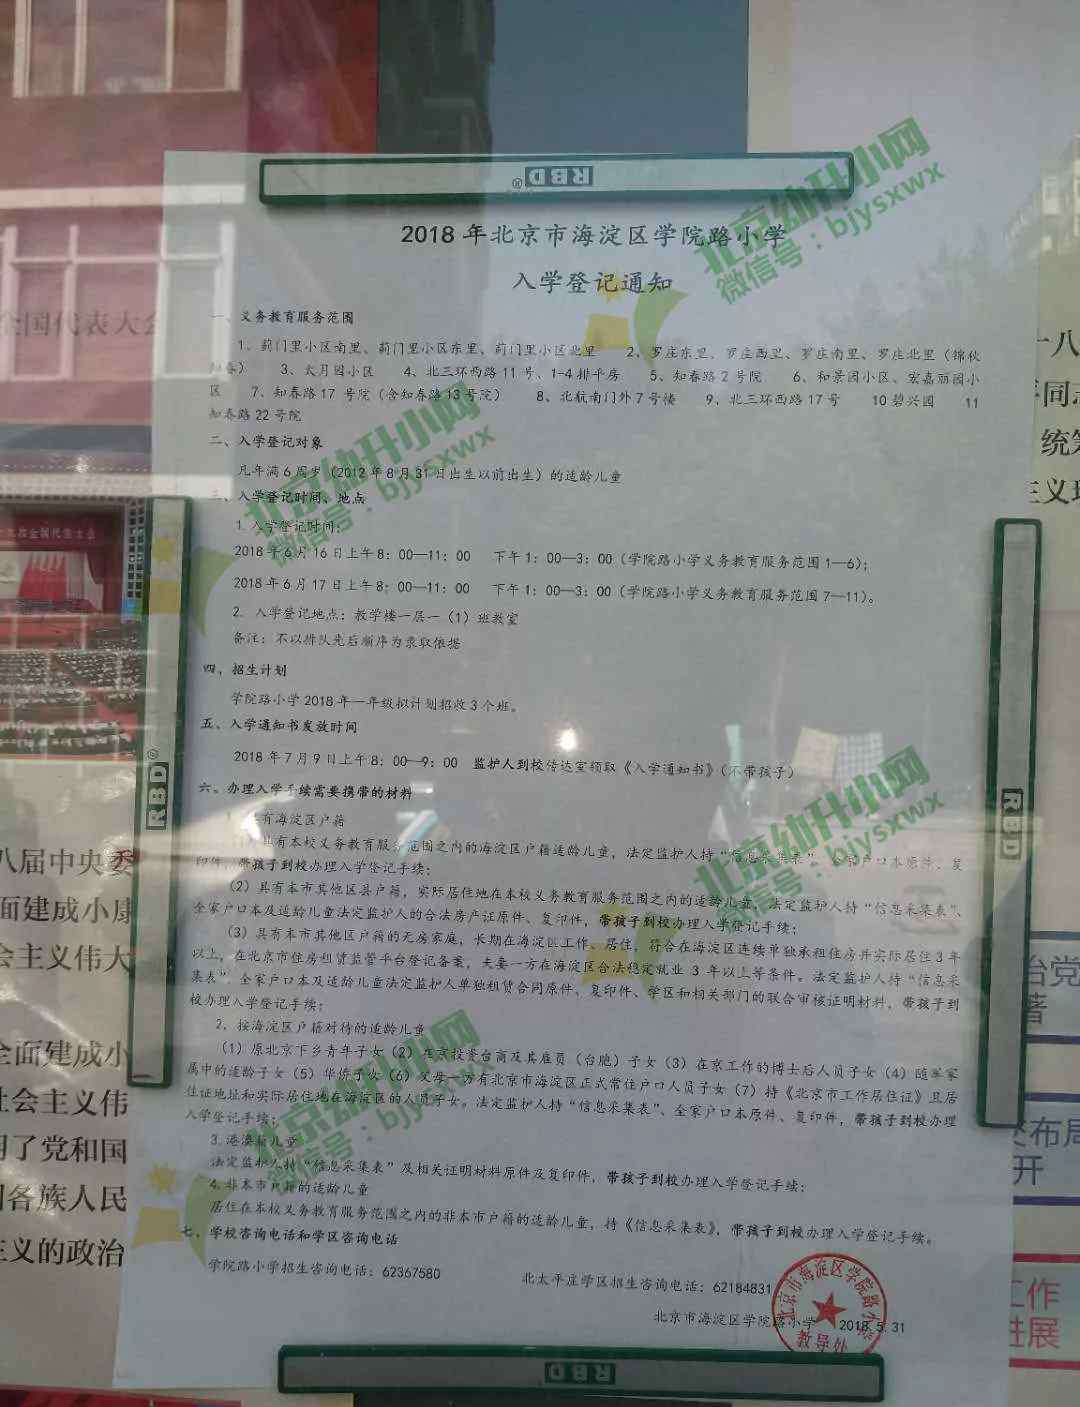 RBD
2018年北京市海淀区学院路小学
入学登记通知
一、义务教育服务范围
1、蓟门里小区南里、蓟门里小区东里、蓟门里小区北里 2、罗庄东里、罗庄西里、罗庄南里、罗庄北里（锦秋
知春） 3、太月园小区 4、北三环西路11号、1-4排平房 5、知春路2号院 6、和景园小区、宏嘉丽园小
区 7、知春路17号院（含知春路13号院） 8、北航南门外7号楼 9、北三环西路17号 10碧兴园 11
知春路22号院
二、入学登记对象
凡年满6周岁（2012年8月31日出生以前出生）的适龄儿童
三、入学登记时间、地点
1.入学登记时间：
2018年6月16日上午8：00—11：00 下午1：00—3：00（学院路小学义务教育服务范围1—6）；
2018年6月17日上午8：00—11：00 下午1：00—3：00（学院路小学义务教育服务范围7—11）。
2.入学登记地点：教学楼一层一（1）班教室
备注：不以排队先后顺序为录取依据
四、招生计划
学院路小学2018年一年级拟计划招收3个班。
五、入学通知书发放时间
2018年7月9日上午8：00—9：00 监护人到校传达室领取《入学通知书》（不带孩子）
六、办理入学手续需要携带的材料
1.具有海淀区户籍
（1）具有本校义务教育服务范围之内的海淀区户籍适龄儿童，法定监护人持“信息采集表”、全家户口本原件、复
印件，带孩子到校办理入学登记手续；
（2）具有本市其他区县户籍，实际居住地在本校义务教育服务范围之内的适龄儿童，法定监护人持“信息采集表”、
全家户口本及适龄儿童法定监护人的合法房产证原件、复印件，带孩子到校办理入学登记手续；
（3）具有本市其他区户籍的无房家庭，长期在海淀区工作、居住，符合在海淀区连续单独承租住房并实际居住3年
以上，在北京市住房租赁监管平台登记备案，夫妻一方在海淀区合法稳定就业 3 年以上等条件。法定监护人持“信息采
集表”、全家户口本及适龄儿童法定监护人单独租赁合同原件、复印件、学区和相关部门的联合审核证明材料，带孩子到
校办理入学登记手续；
2、按海淀区户籍对待的适龄儿童
（1）原北京下乡青年子女（2）在京投资台商及其雇员（台胞）子女（3）在京工作的博士后人员子女（4）随军家
属中的适龄子女（5）华侨子女（6）父母一方有北京市海淀区正式常住户口人员子女（7）持《北京市工作居住证》且居
住证地址和实际居住地在海淀区的人员子女。法定监护人持“信息采集表”、全家户口本原件、复印件，带孩子到校办理
入学登记手续；
3.港澳籍儿童
法定监护人持“信息采集表”及相关证明材料原件及复印件，带孩子到校办理入学登记手续；
4.非本市户籍的适龄儿童
居住在本校义务教育服务范围之内的非本市户籍的适龄儿童，持《信息采集表》，带孩子到校办理入学登记手续。
七、学校咨询电话和学区咨询电话
学院路小学招生咨询电话：62367580
北太平庄学区招生咨询电话：62184831
北京市海淀区学院路小学 2018.5.31
北京市海淀区学院路小学
教导处
RBD
RBD
RBD
北京幼升小网
微信号：bjysxwx
北京幼升小网
微信号：bjysxwx
北京幼升小网
微信号：bjysxwx
北京幼升小网
微信号：bjysxwx
全国代表大会
八届中央委
面建成小康
会主义伟大
全面建成小
社会主义伟
明了党和国
国各族人民
主义的政治
十八
同志
统筹
主义现
治党
著
布局
开
工作
进展